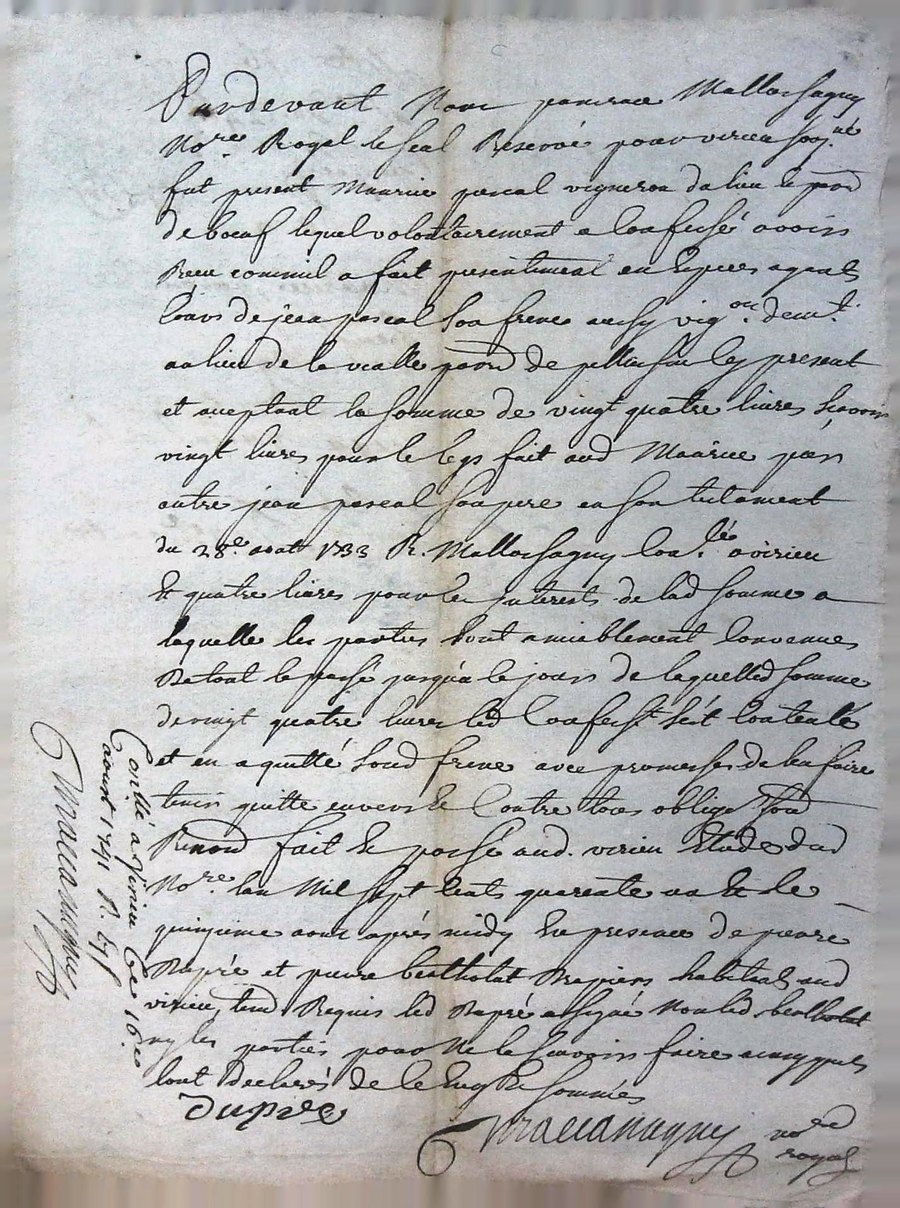 Pardevant Nous pancrace Mallassagny
No.re Royal le seal Reservé pour virieu soussig.né
fut present Maurice pascal vigneron du lieu & parr
de bœuf lequel volontairement a confessé avoir
Receu comm'il a fait presentement en especes agents
Cours de jean pascal son frere aussy vig.on demt.
au lieu de la vialle parr de pellussin icy present
et acceptant la somme de vingt quatre livres scavoir
vingt livres pour le legs fait aud Maurice par
autre jean pascal son pere en son testament
du 28.e aoat 1733 R. Mallassagny Con.lé a virieu
Et quatre livres pour les Interests de lad somme a
laquelle les parties sont amiablement Convenues
De tout le passé jusqu'a le jours de laquelled somme
de vingt quatre livres led Confess.t s'est Contenté
et en a quitté soud frere avec promesses de l'en faire
tenir quitte envers & Contre tous oblige soud
Renond fait & passé aud. virieu Etude dud
No.re lan Mil sept Cents quarente un Et le
quinzieme aout aprés midy En presence de pierre
Dupré et pierre bertholat Drapiers habitants aud
virieu, temd Requis led Dupré a signé Non led bertholat
ny les parties pour Ne le scavoir faire ainsy quils
lont Declarés de ce Enq & sommés
Dupré
Mallassagny no.re
royal
Conllé a Virieu Ce 16.e
aoust 1741 R. 6 s
Mallassagny